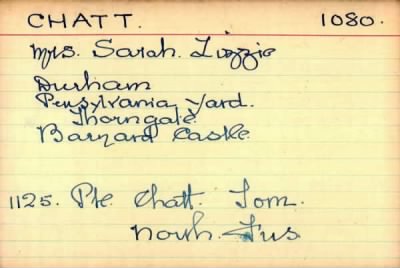 CHATT. 1080.
Mrs. Sarah. Lizzie
Durham
Pensylvania Yard.
Thorngate.
Barnard Castle.
1125. Pte Chatt. Tom.
North. Fus